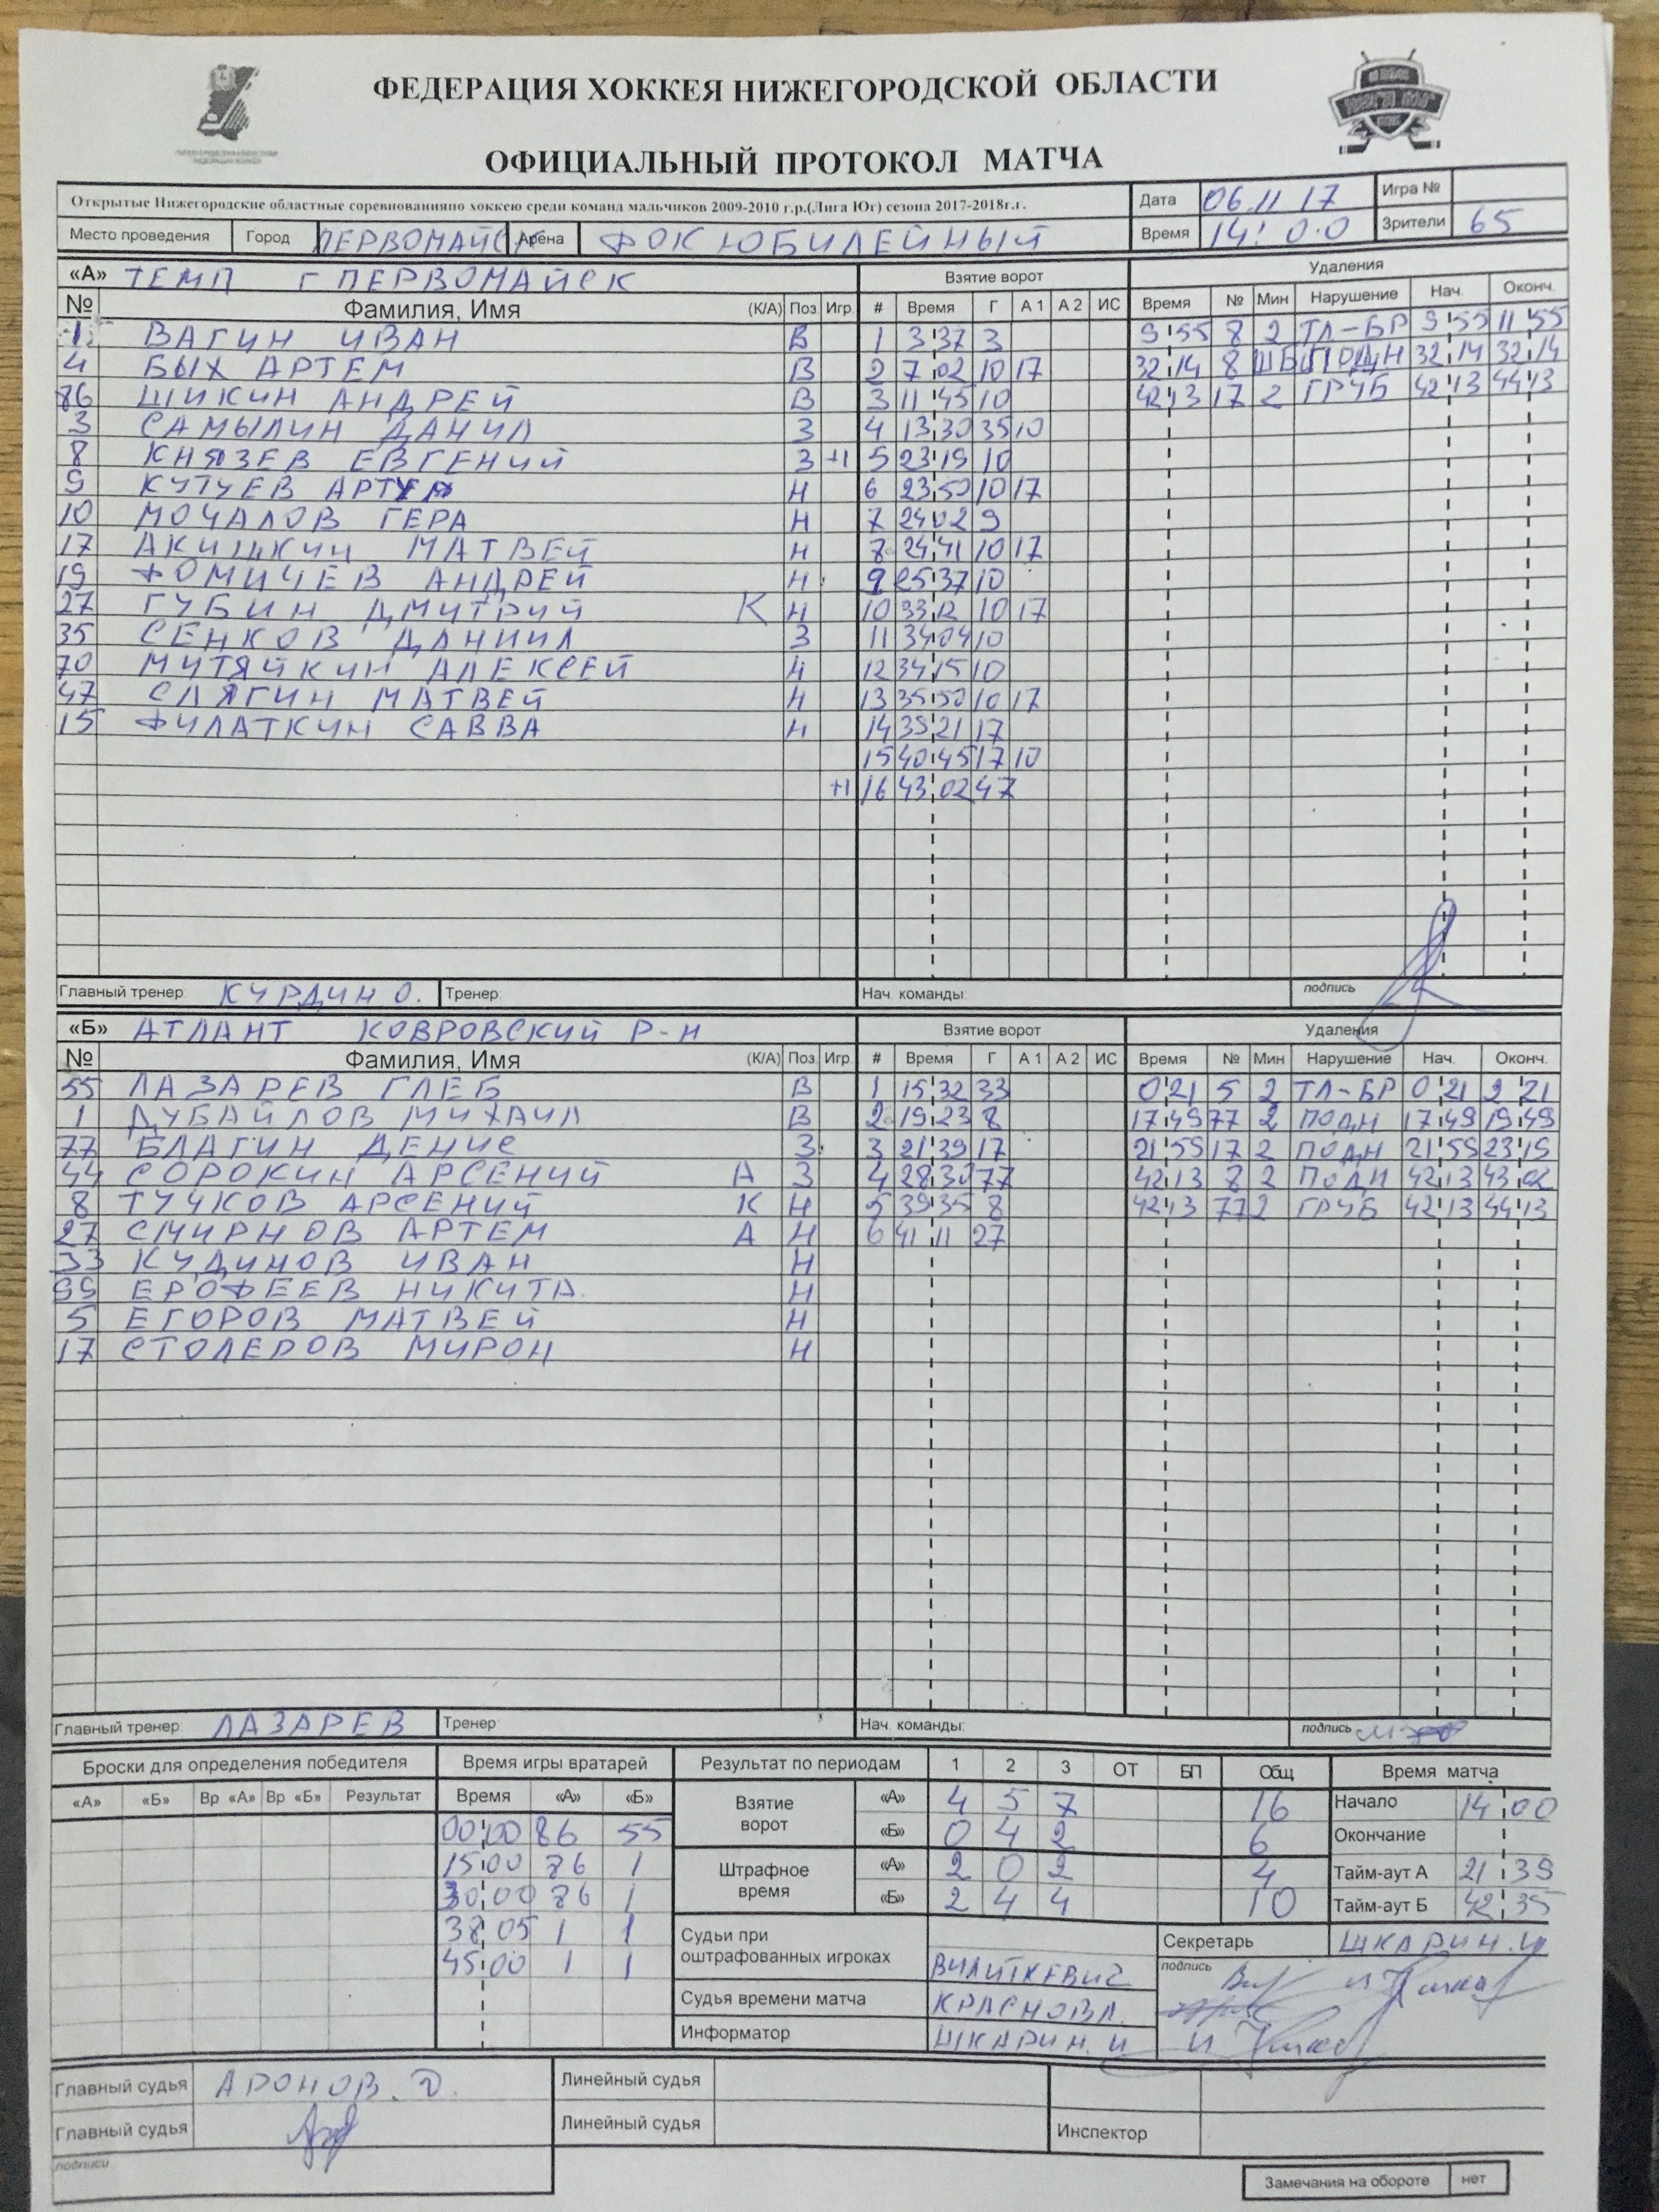 ФЕДЕРАЦИЯ ХОККЕЯ НИЖЕГОРОДСКОЙ ОБЛАСТИ
ОФИЦИАЛЬНЫЙ ПРОТОКОЛ МАТЧА
Открытые Нижегородские областные соревнованияпо хоккею среди команд мальчиков 2009-2010 г.р.(Лига Юг) сезона 2017-2018г.г. Дата 06.11 17 Игра №
Место проведения Город ПЕРВОМАЙСК Арена ФОК ЮБИЛЕЙНЫЙ Время 14:00 Зрители 65
«А» ТЕМП Г ПЕРВОМАЙСК Взятие ворот Удаления
№ Фамилия, Имя (К/А) Поз Игр # Время Г А 1 А 2 ИС Время № Мин Нарушение Нач. Оконч.
1 ВАГИН ИВАН В 1 3:37 3 9:55 8 2 ТЛ-БР 9:55 11:55
4 БЫХ АРТЕМ В 2 7:02 10 17 32:14 8 ШБ ПОДН 32:14 32:14
86 ШИКИН АНДРЕЙ В 3 11:45 10 42:13 17 2 ГРУБ 42:13 44:13
3 САМЫЛИН ДАНИЛ З 4 13:30 35 10
8 КНЯЗЕВ ЕВГЕНИЙ З +1 5 23:19 10
9 КУТУЕВ АРТУР Н 6 23:50 10 17
10 МОЧАЛОВ ГЕРА Н 7 24:02 9
17 АКИШКИН МАТВЕЙ Н 8 24:41 10 17
19 ФОМИЧЕВ АНДРЕЙ Н 9 25:37 10
27 ГУБИН ДМИТРИЙ К Н 10 33:12 10 17
35 СЕНКОВ ДАНИИЛ З 11 34:04 10
70 МИТЯЙКИН АЛЕКСЕЙ Н 12 34:15 10
47 СЛЯГИН МАТВЕЙ Н 13 35:50 10 17
15 ФИЛАТКИН САВВА Н 14 39:21 17
15 40:45 17 10
+1 16 43:02 47
Главный тренер КУРДИН О. Тренер: Нач. команды: подпись
«Б» АТЛАНТ КОВРОВСКИЙ Р-Н Взятие ворот Удаления
№ Фамилия, Имя (К/А) Поз Игр # Время Г А 1 А 2 ИС Время № Мин Нарушение Нач. Оконч.
55 ЛАЗАРЕВ ГЛЕБ В 1 15:32 33 0:21 5 2 ТЛ-БР 0:21 2:21
1 ДУБАЙЛОВ МИХАИЛ В 2 19:23 8 17:49 77 2 ПОДН 17:49 19:49
77 БЛАГИН ДЕНИС З 3 21:39 17 21:59 17 2 ПОДН 21:59 23:19
44 СОРОКИН АРСЕНИЙ А З 4 28:30 77 42:13 8 2 ПОДН 42:13 43:02
8 ТУЧКОВ АРСЕНИЙ К Н 5 39:35 8 42:13 77 2 ГРУБ 42:13 44:13
27 СМИРНОВ АРТЕМ А Н 6 41:11 27
33 КУДИНОВ ИВАН Н
99 ЕРОФЕЕВ НИКИТА. Н
5 ЕГОРОВ МАТВЕЙ Н
17 СТОЛЕРОВ МИРОН Н
Главный тренер: ЛАЗАРЕВ Тренер: Нач. команды: подпись
Броски для определения победителя Время игры вратарей Результат по периодам 1 2 3 ОТ БП Общ Время матча
«А» «Б» Вр «А» Вр «Б» Результат Время «А» «Б» Взятие ворот «А» 4 5 7 16 Начало 14:00
00:00 86 55 «Б» 0 4 2 6 Окончание
15:00 86 1 Штрафное время «А» 2 0 2 4 Тайм-аут А 21:39
30:00 86 1 «Б» 2 4 4 10 Тайм-аут Б 42:35
38:05 1 1 Судьи при оштрафованных игроках Секретарь ШКАРИН.И
45:00 1 1 ВИЛИТКЕВИЧ подпись
Судья времени матча КРАСНОВА.
Информатор ШКАРИН.И
Главный судья АРОНОВ.Д. Линейный судья
Главный судья Линейный судья Инспектор
подписи
Замечания на обороте нет